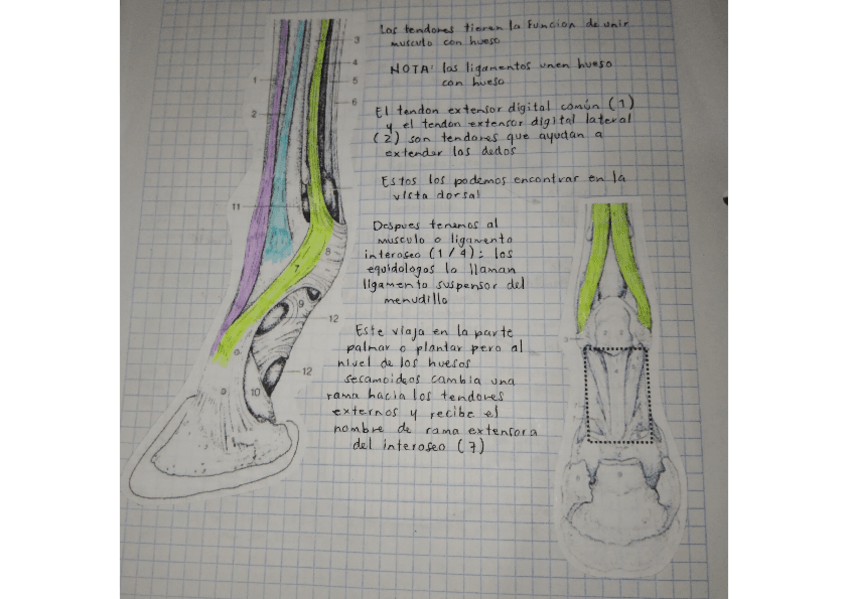 Los tendones tienen la función de unir
musculo con hueso
NOTA: los ligamentos unen hueso
con hueso
El tendon extensor digital común (1)
y el tendon extensor digital lateral
(2) son tendones que ayudan a
extender los dedos
Estos los podemos encontrar en la
vista dorsal
Despues tenemos al
musculo o ligamento
interoseo (1/4): los
equidologos lo llaman
ligamento suspensor del
menudillo
Este viaja en la parte
palmar o plantar pero al
nivel de los huesos
sesamoideos cambia una
rama hacia los tendores
externos y recibe el
nombre de rama extensora
del interoseo (7)
3
4
1
5
6
2
11
8
7
9
12
12
9
10
3